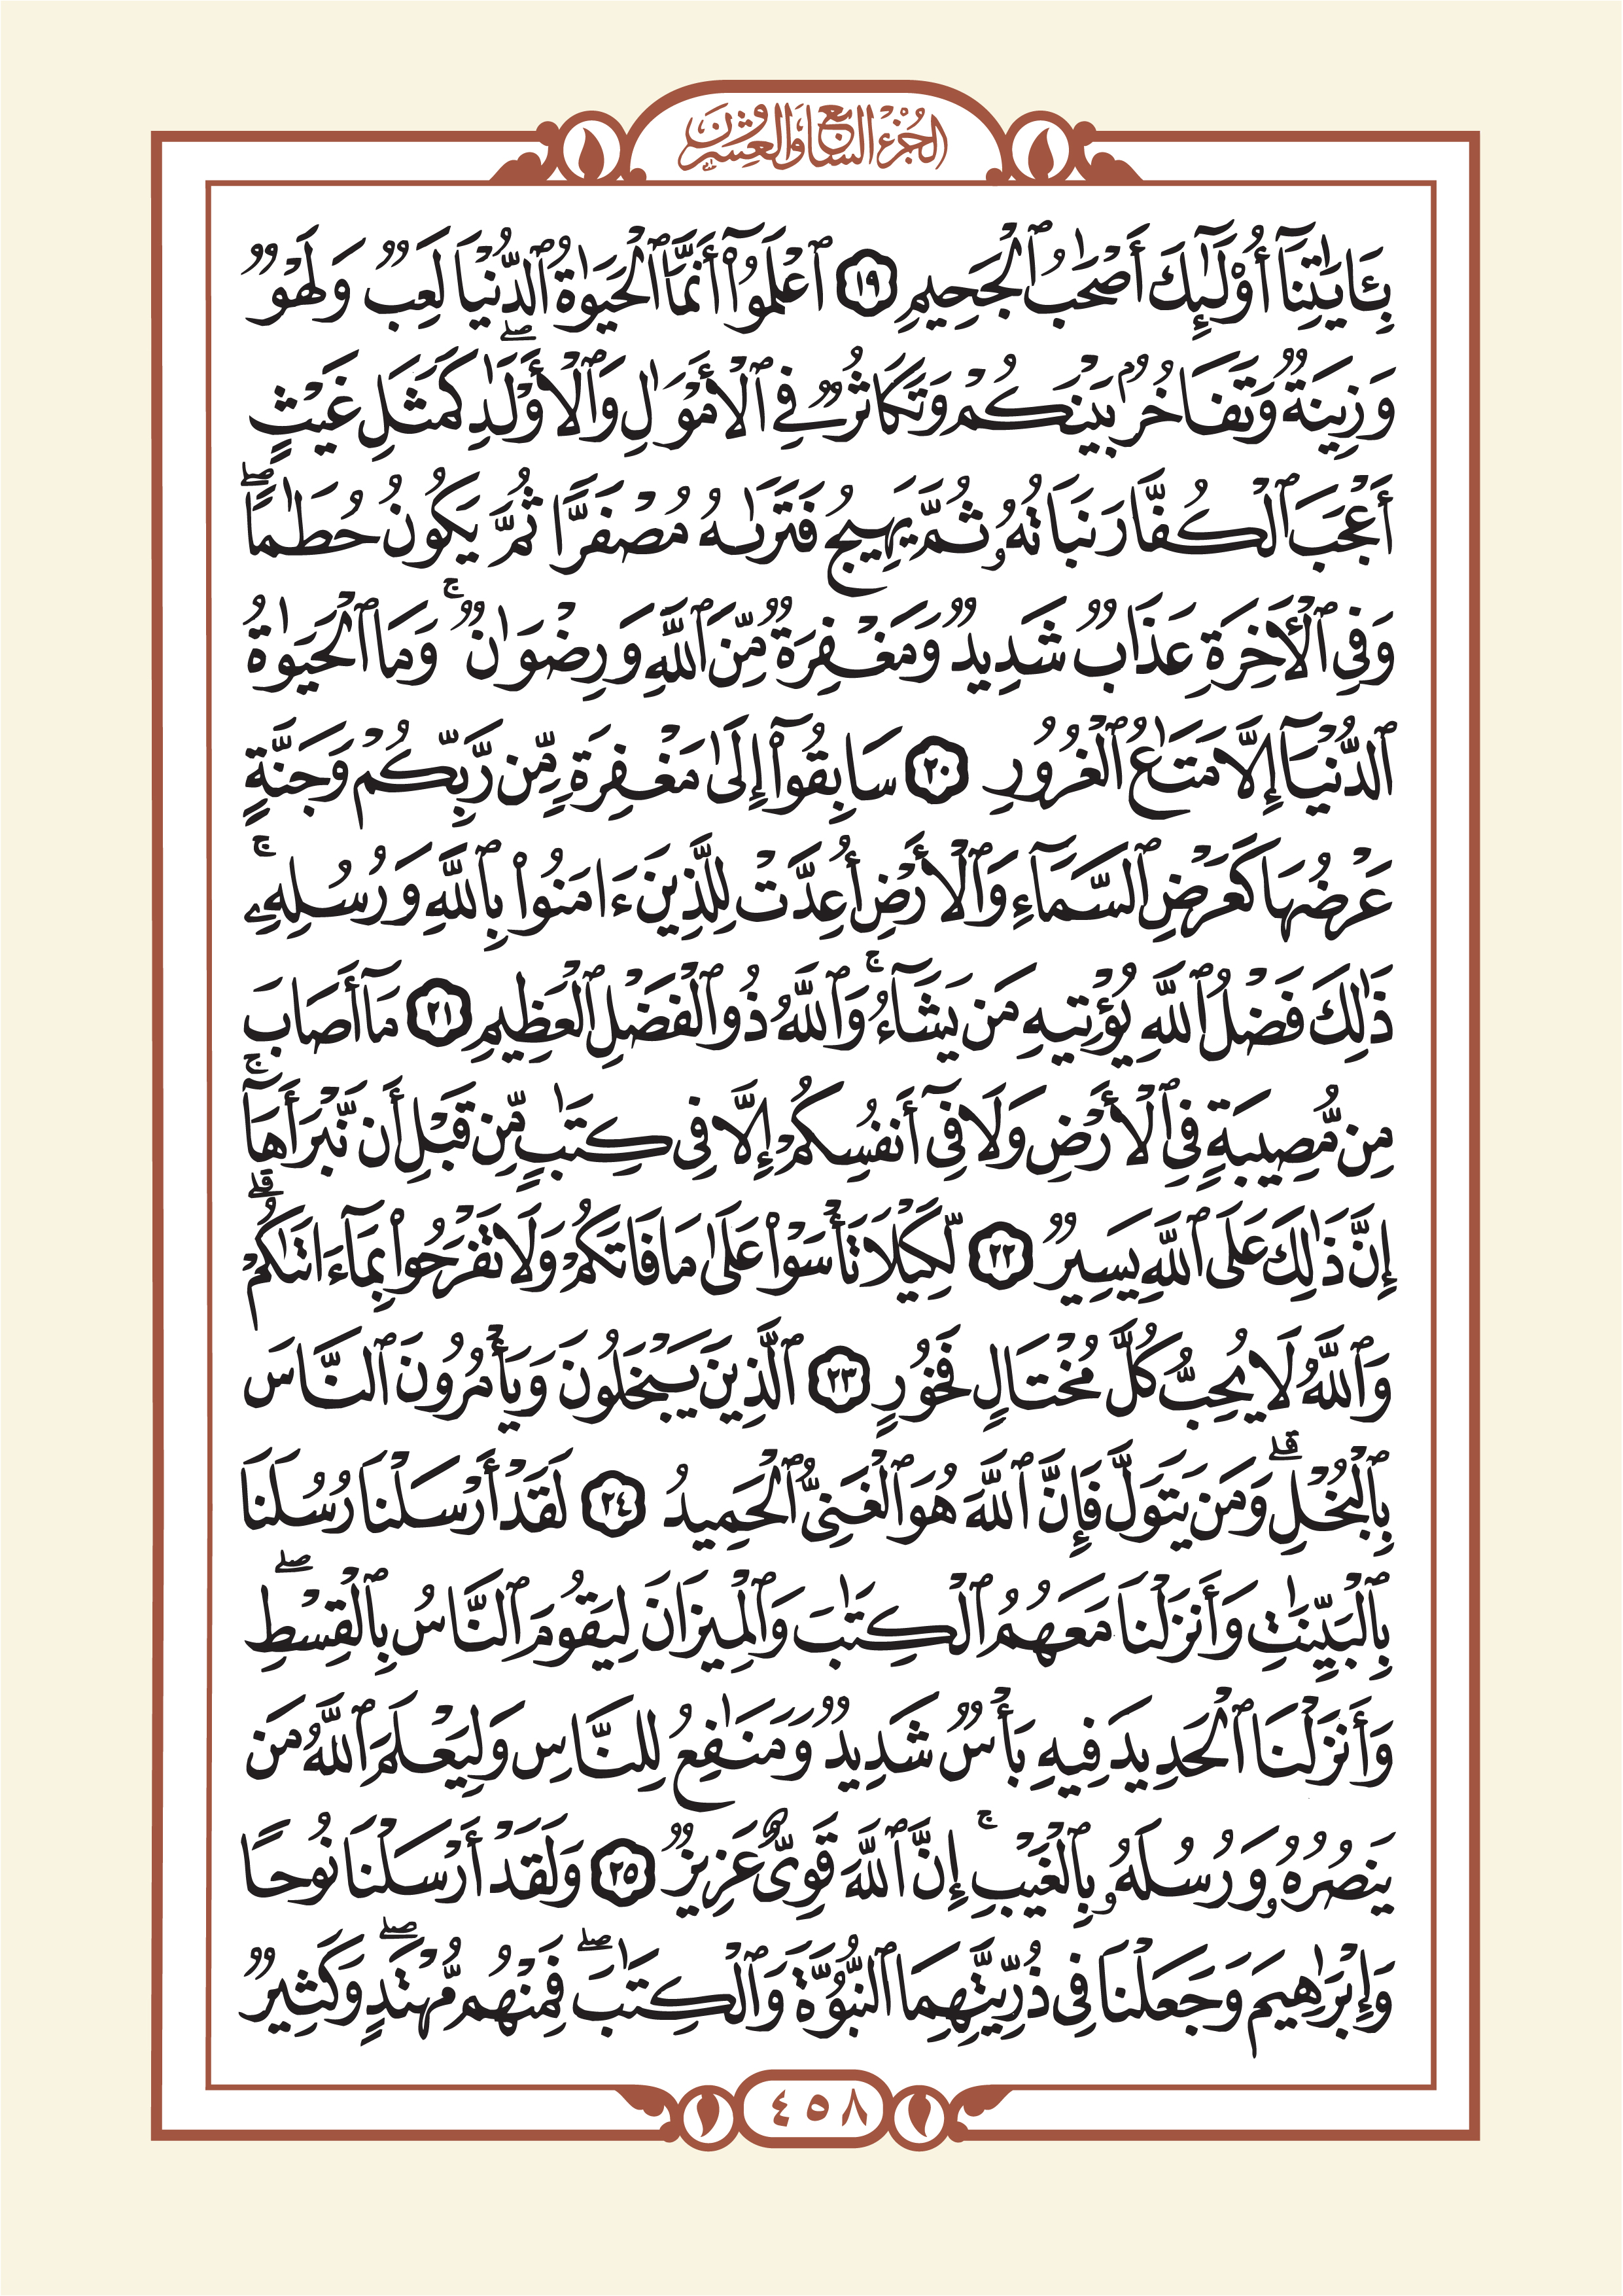 الجزء السابع والعشرون
بِـَٔايَٰتِنَآ أُو۟لَٰٓئِكَ أَصْحَٰبُ ٱلْجَحِيمِ ١٩ ٱعْلَمُوٓا۟ أَنَّمَا ٱلْحَيَوٰةُ ٱلدُّنْيَا لَعِبٌ وَلَهْوٌ
وَزِينَةٌ وَتَفَاخُرٌۢ بَيْنَكُمْ وَتَكَاثُرٌ فِي ٱلْأَمْوَٰلِ وَٱلْأَوْلَٰدِۖ كَمَثَلِ غَيْثٍ
أَعْجَبَ ٱلْكُفَّارَ نَبَاتُهُۥ ثُمَّ يَهِيجُ فَتَرَىٰهُ مُصْفَرًّا ثُمَّ يَكُونُ حُطَٰمًاۖ
وَفِي ٱلْأَخِرَةِ عَذَابٌ شَدِيدٌ وَمَغْفِرَةٌ مِّنَ ٱللَّهِ وَرِضْوَٰنٌۚ وَمَا ٱلْحَيَوٰةُ
ٱلدُّنْيَآ إِلَّا مَتَٰعُ ٱلْغُرُورِ ٢٠ سَابِقُوٓا۟ إِلَىٰ مَغْفِرَةٍ مِّن رَّبِّكُمْ وَجَنَّةٍ
عَرْضُهَا كَعَرْضِ ٱلسَّمَآءِ وَٱلْأَرْضِ أُعِدَّتْ لِلَّذِينَ ءَامَنُوا۟ بِٱللَّهِ وَرُسُلِهِۦۚ
ذَٰلِكَ فَضْلُ ٱللَّهِ يُؤْتِيهِ مَن يَشَآءُۚ وَٱللَّهُ ذُو ٱلْفَضْلِ ٱلْعَظِيمِ ٢١ مَآ أَصَابَ
مِن مُّصِيبَةٍ فِي ٱلْأَرْضِ وَلَا فِيٓ أَنفُسِكُمْ إِلَّا فِي كِتَٰبٍ مِّن قَبْلِ أَن نَّبْرَأَهَآۚ
إِنَّ ذَٰلِكَ عَلَى ٱللَّهِ يَسِيرٌ ٢٢ لِّكَيْلَا تَأْسَوْا۟ عَلَىٰ مَا فَاتَكُمْ وَلَا تَفْرَحُوا۟ بِمَآ ءَاتَىٰكُمْۗ
وَٱللَّهُ لَا يُحِبُّ كُلَّ مُخْتَالٍ فَخُورٍ ٢٣ ٱلَّذِينَ يَبْخَلُونَ وَيَأْمُرُونَ ٱلنَّاسَ
بِٱلْبُخْلِۗ وَمَن يَتَوَلَّ فَإِنَّ ٱللَّهَ هُوَ ٱلْغَنِيُّ ٱلْحَمِيدُ ٢٤ لَقَدْ أَرْسَلْنَا رُسُلَنَا
بِٱلْبَيِّنَٰتِ وَأَنزَلْنَا مَعَهُمُ ٱلْكِتَٰبَ وَٱلْمِيزَانَ لِيَقُومَ ٱلنَّاسُ بِٱلْقِسْطِۖ
وَأَنزَلْنَا ٱلْحَدِيدَ فِيهِ بَأْسٌ شَدِيدٌ وَمَنَٰفِعُ لِلنَّاسِ وَلِيَعْلَمَ ٱللَّهُ مَن
يَنصُرُهُۥ وَرُسُلَهُۥ بِٱلْغَيْبِۚ إِنَّ ٱللَّهَ قَوِيٌّ عَزِيزٌ ٢٥ وَلَقَدْ أَرْسَلْنَا نُوحًا
وَإِبْرَٰهِيمَ وَجَعَلْنَا فِي ذُرِّيَّتِهِمَا ٱلنُّبُوَّةَ وَٱلْكِتَٰبَۖ فَمِنْهُم مُّهْتَدٍۖ وَكَثِيرٌ
٤٥٨